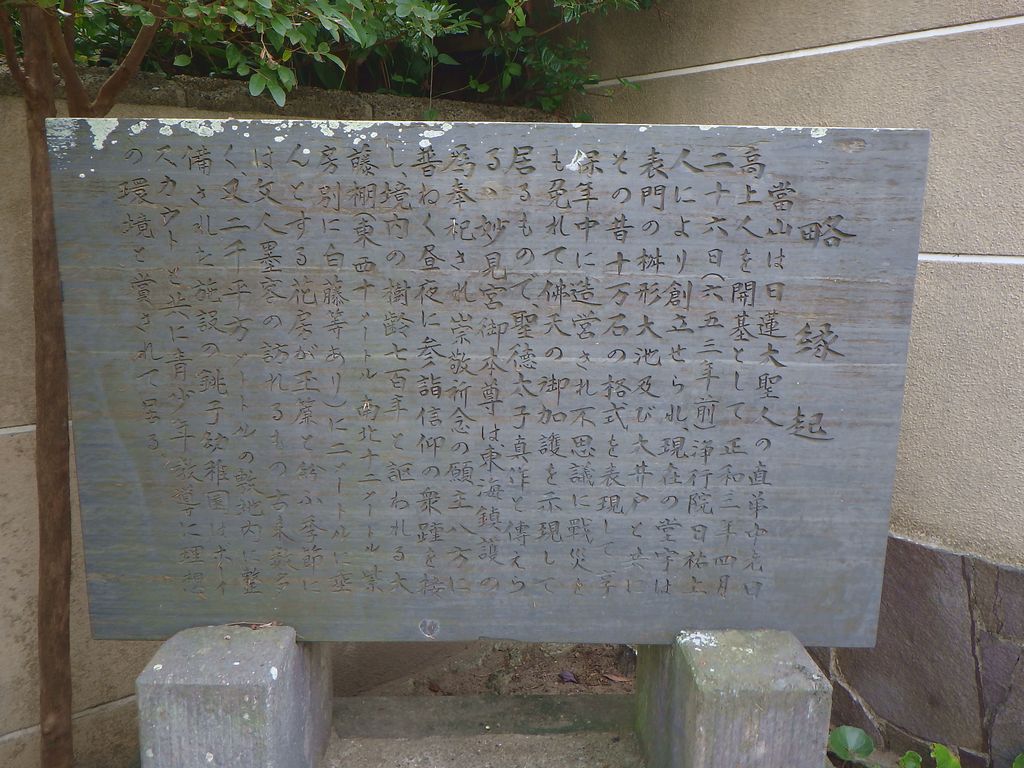 略縁起
當山は日蓮大聖人の直弟中老日
高上人を開基として正和三年四月
二十六日(六五三年前)浄行院日祐上
人により創立せられ、現在の堂宇は
表門の桝形大池及び大井戸と共に
その昔十万石の格式を表現して享
保年中に造営され不思議に戰災を
も免れて佛天の御加護を示現して
居るもので、聖德太子真作と傳えら
るゝ妙見宮御本尊は東海鎮護の
為奉祀され崇敬祈念の願主八方に
普ねく昼夜に参詣信仰の衆踵を接
し、境内の樹齢七百年と謳われる大
藤棚(東西十メートル 南北十二メートル 紫
房別に白藤等あり)に二メートルに垂
んとする花房が玉簾と紛ふ季節に
は文人墨客の訪れるもの古来数多
く、又二千平方メートルの敷地内に整
備された施設の銚子幼稚園はボーイ
スカウトと共に青少年教導に理想
の環境と賞されて居る。